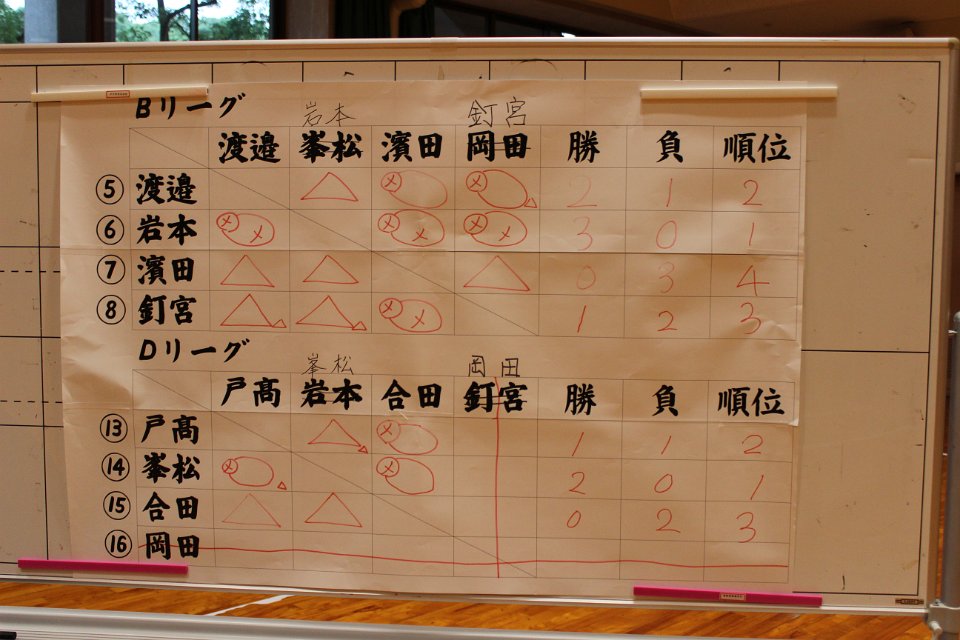 Bリーグ
岩本 釘宮
渡邉 峯松 濱田 岡田 勝 負 順位
⑤ 渡邉 2 1 2
⑥ 岩本 3 0 1
⑦ 濱田 0 3 4
⑧ 釘宮 1 2 3
Dリーグ
峯松 岡田
戸髙 岩本 合田 釘宮 勝 負 順位
⑬ 戸髙 1 1 2
⑭ 峯松 2 0 1
⑮ 合田 0 2 3
⑯ 岡田